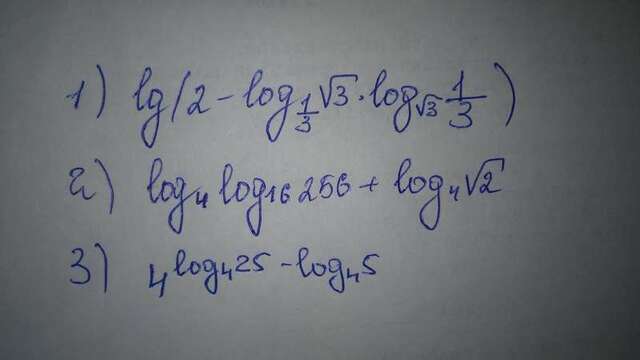 1) lg(2 - log_{1/3} √3 · log_{√3} 1/3)
2) log₄ log₁₆ 256 + log₄ √2
3) 4^{log₄ 25 - log₄ 5}